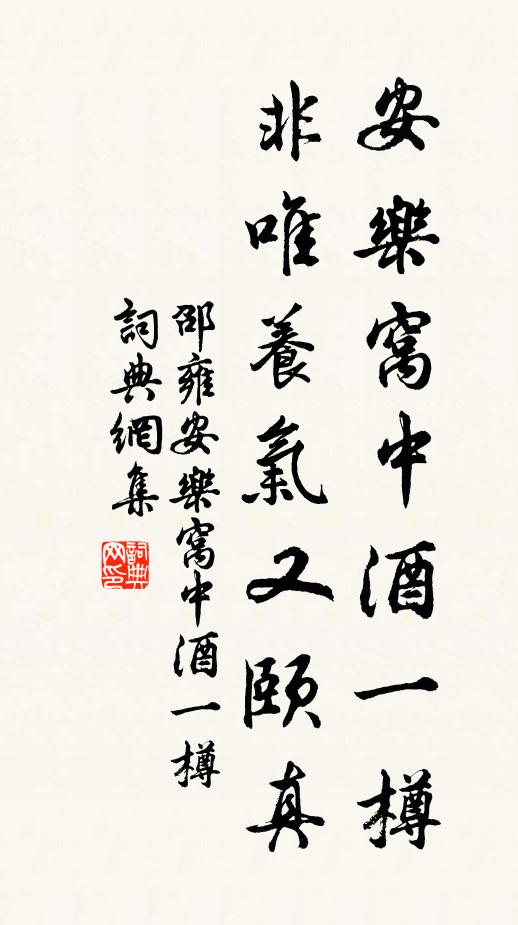 安樂窩中酒一樽
非唯養氣又頤真
邵雍安樂窩中酒一樽
詞典網集
詞典网印